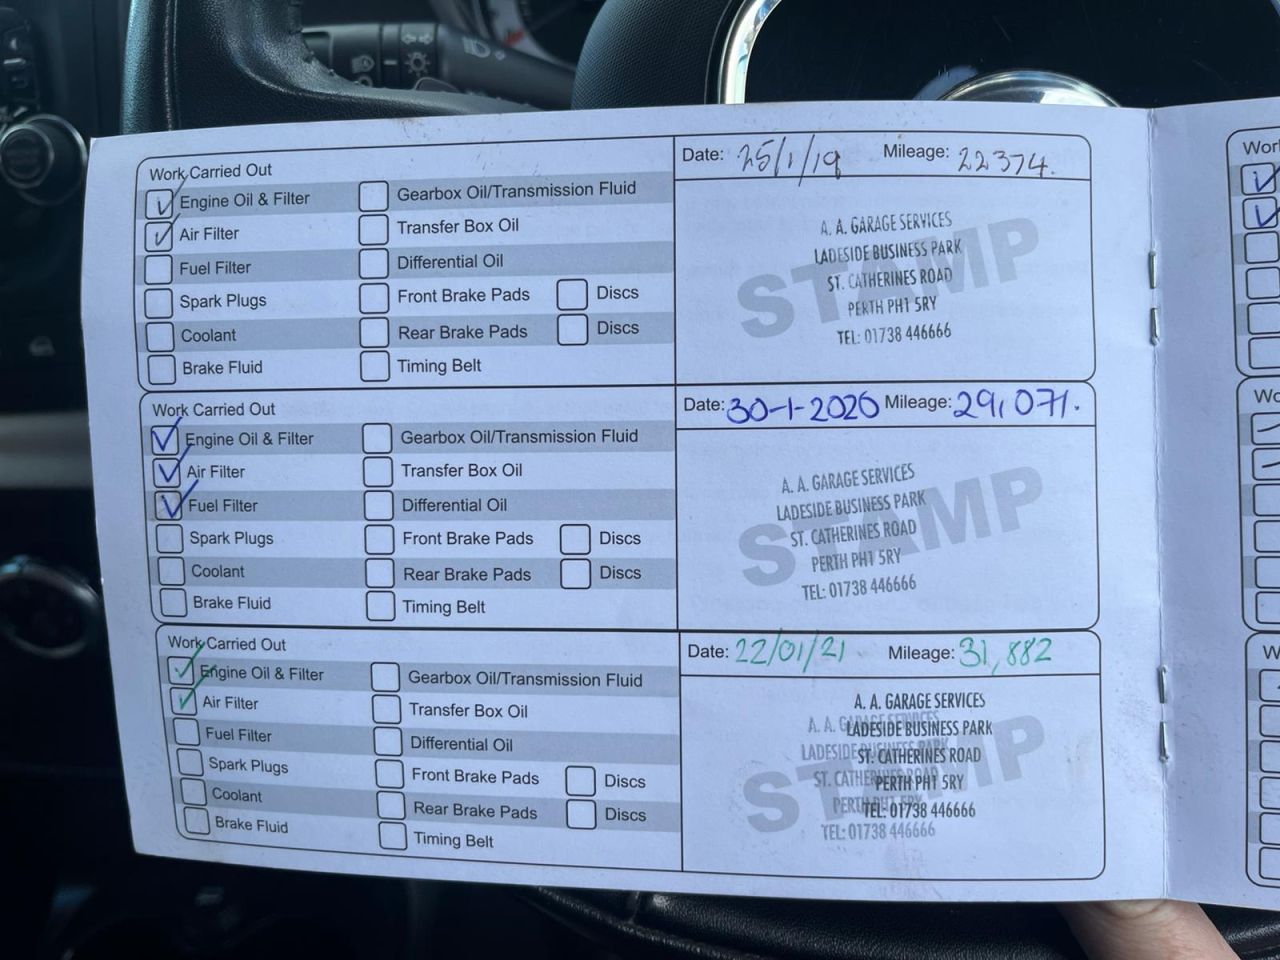 Work Carried Out
Engine Oil & Filter Gearbox Oil/Transmission Fluid
Air Filter Transfer Box Oil
Fuel Filter Differential Oil
Spark Plugs Front Brake Pads Discs
Coolant Rear Brake Pads Discs
Brake Fluid Timing Belt
Date: 25/1/19 Mileage: 22374.
STAMP
A. A. GARAGE SERVICES
LADESIDE BUSINESS PARK
ST. CATHERINES ROAD
PERTH PH1 5RY
TEL: 01738 446666
Work Carried Out
Engine Oil & Filter Gearbox Oil/Transmission Fluid
Air Filter Transfer Box Oil
Fuel Filter Differential Oil
Spark Plugs Front Brake Pads Discs
Coolant Rear Brake Pads Discs
Brake Fluid Timing Belt
Date: 30-1-2020 Mileage: 29,071.
STAMP
A. A. GARAGE SERVICES
LADESIDE BUSINESS PARK
ST. CATHERINES ROAD
PERTH PH1 5RY
TEL: 01738 446666
Work Carried Out
Engine Oil & Filter Gearbox Oil/Transmission Fluid
Air Filter Transfer Box Oil
Fuel Filter Differential Oil
Spark Plugs Front Brake Pads Discs
Coolant Rear Brake Pads Discs
Brake Fluid Timing Belt
Date: 22/01/21 Mileage: 31,882
STAMP
A. A. GARAGE SERVICES
LADESIDE BUSINESS PARK
ST. CATHERINES ROAD
PERTH PH1 5RY
TEL: 01738 446666
A. A. GARAGE SERVICES
LADESIDE BUSINESS PARK
ST. CATHERINES ROAD
PERTH PH1 5RY
TEL: 01738 446666